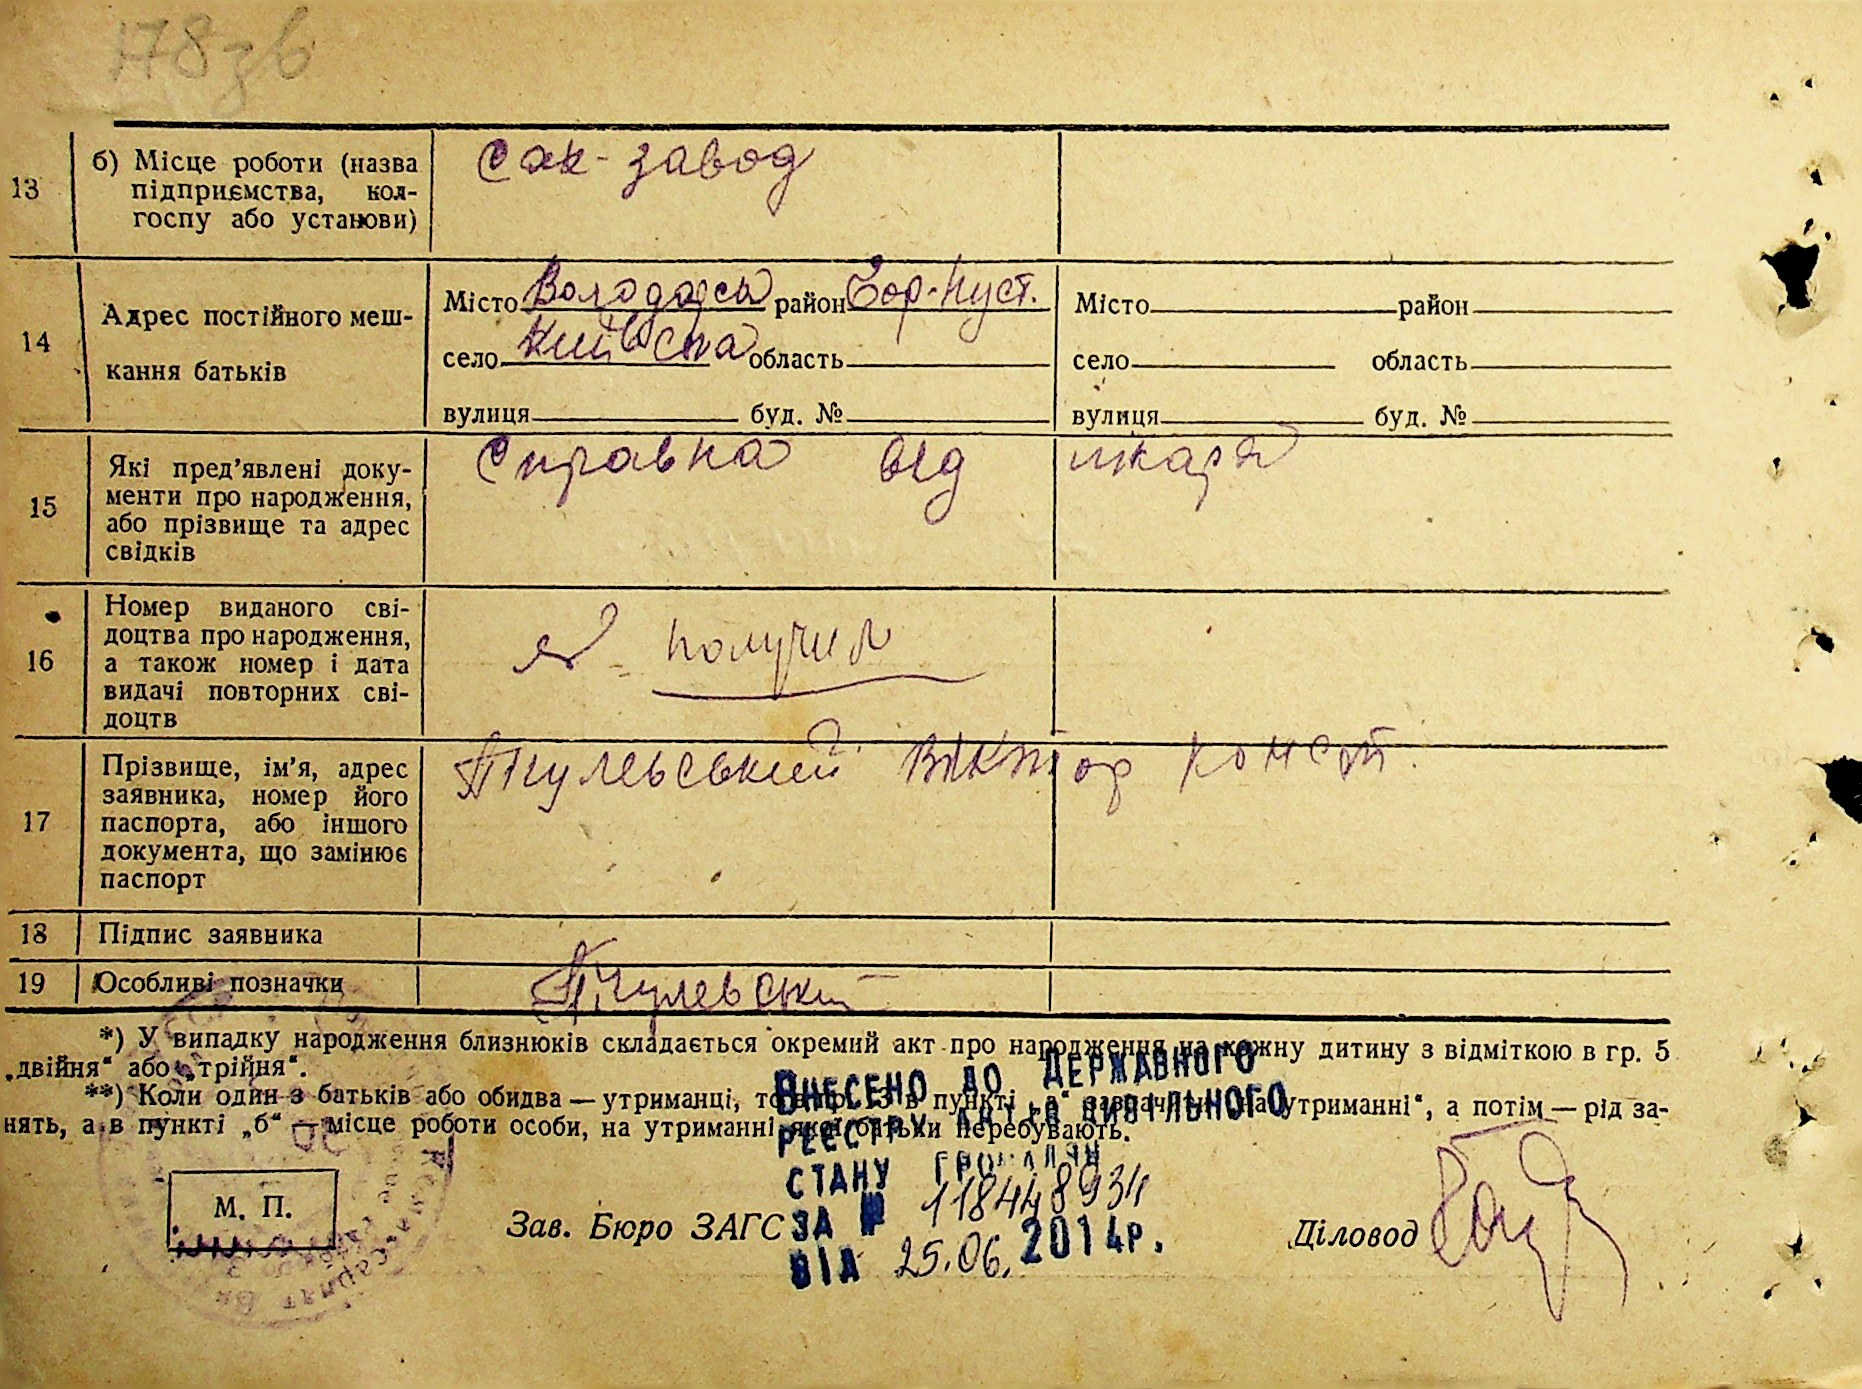 178зв
13 б) Місце роботи (назва підприємства, кол-госпу або установи) Сах-завод
14 Адрес постійного меш-кання батьків
Місто Володарськ район Чор-Пуст. Місто район
село Київська область село область
вулиця буд. № вулиця буд. №
15 Які пред'явлені доку-
менти про народження,
або прізвище та адрес
свідків
Справка від лікаря
16 Номер виданого сві-
доцтва про народження,
а також номер і дата
видачі повторних сві-
доцтв
получил
17 Прізвище, ім'я, адрес
заявника, номер його
паспорта, або іншого
документа, що замінює
паспорт
Пчулевський Віктор Конст.
18 Підпис заявника
19 Особливі позначки
Пчулевськи
*) У випадку народження близнюків складається окремий акт про народження на кожну дитину з відміткою в гр. 5
„двійня“ або „трійня“.
**) Коли один з батьків або обидва — утриманці, то в пункті „а“ на утриманні“, а потім — рід за-
нять, а в пункті „б“ — місце роботи особи, на утриманні якої батьки перебувають.
ВНЕСЕНО ДО ДЕРЖАВНОГО
РЕЄСТРУ АКТІВ ЦИВІЛЬНОГО
СТАНУ ГРОМАДЯН
ЗА № 118448934
ВІД 25.06. 2014р.
М. П.
Зав. Бюро ЗАГС
Діловод